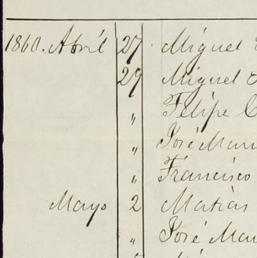 1860. Abril 27 Miguel
29 Miguel
" Felipe C
" José Mari
" Francisco
Mayo 2 Matias
" José Mar